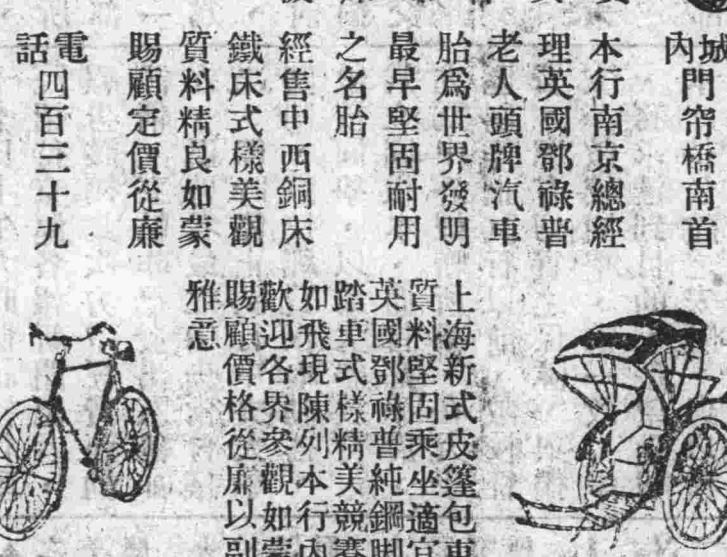 城
內門帘橋南首
本行南京總經
理英國鄧祿普
老人頭牌汽車
胎爲世界發明
最早堅固耐用
之名胎
經售中西銅床
鐵床式樣美觀
質料精良如蒙
賜顧定價從廉
電
話四百三十九
上海新式皮篷包車
質料堅固乘坐適宜
英國鄧祿普純鋼脚
踏車式樣精美競賽
如飛現陳列本行內
歡迎各界參觀如蒙
賜顧價格從廉以副
雅意